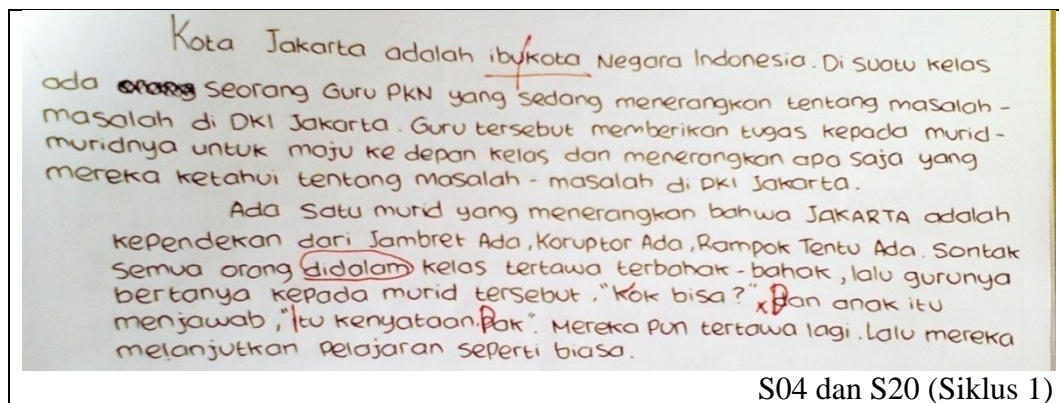 Kota Jakarta adalah ibukota Negara Indonesia. Di suatu kelas
ada seorang Guru PKN yang sedang menerangkan tentang masalah-
masalah di DKI Jakarta. Guru tersebut memberikan tugas kepada murid-
muridnya untuk maju ke depan kelas dan menerangkan apa saja yang
mereka ketahui tentang masalah - masalah di DKI Jakarta.
Ada satu murid yang menerangkan bahwa JAKARTA adalah
kependekan dari Jambret Ada, Koruptor Ada, Rampok Tentu Ada. Sontak
semua orang didalam kelas tertawa terbahak-bahak, lalu gurunya
bertanya kepada murid tersebut, "Kok bisa?" Dan anak itu
menjawab, "Itu kenyataan Pak". Mereka pun tertawa lagi. Lalu mereka
melanjutkan pelajaran seperti biasa.
S04 dan S20 (Siklus 1)